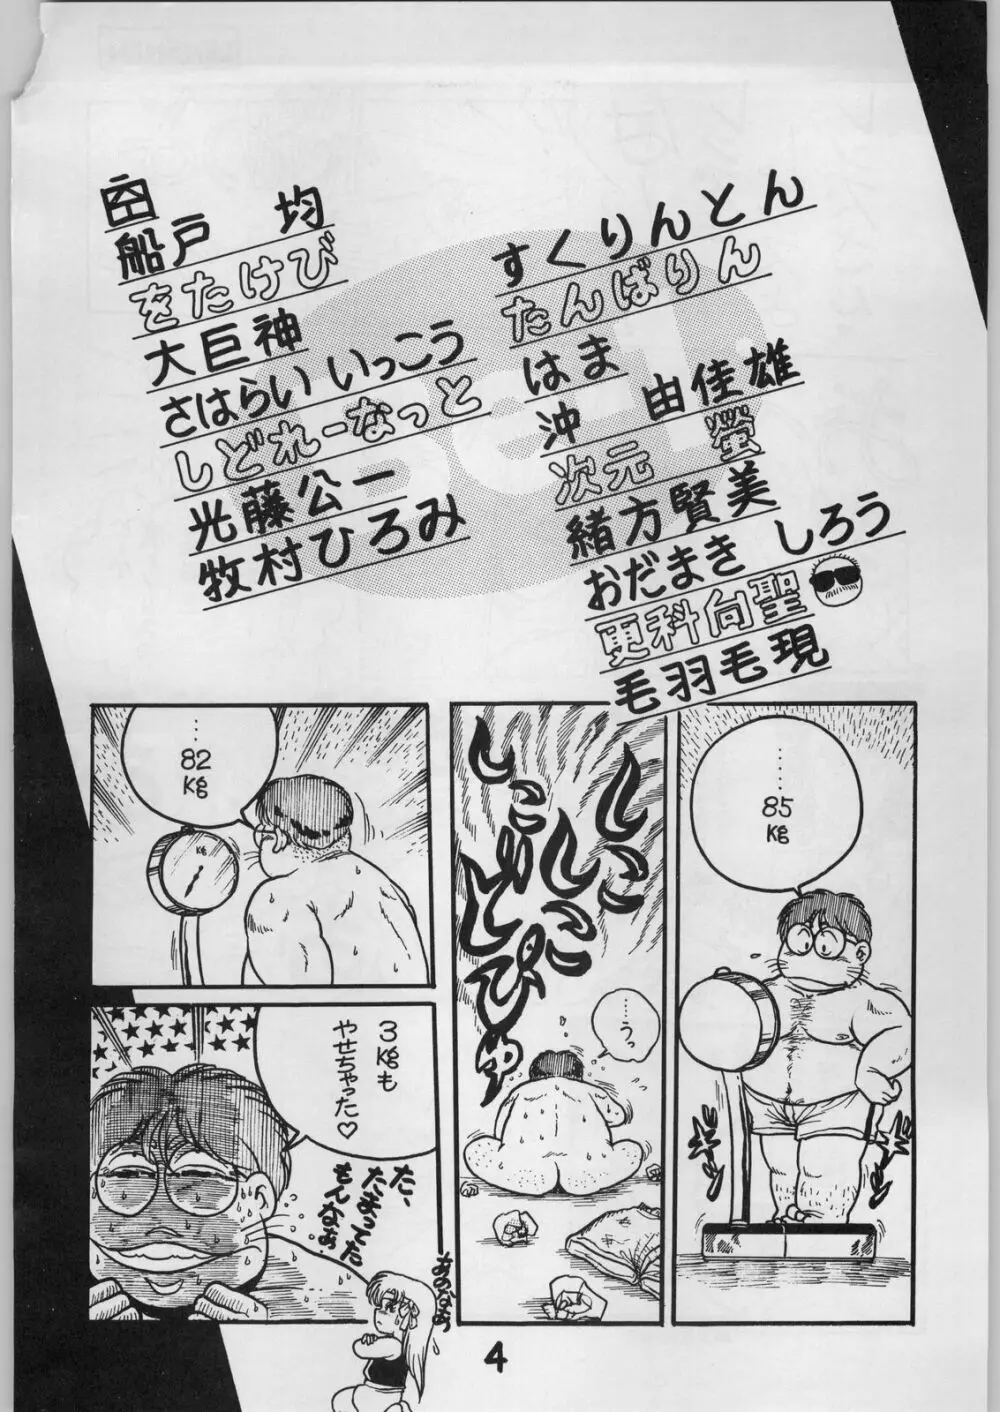 船戸 均
をたけび
大巨神
さはらい いっこう
しどれーなっと
光藤公一
牧村ひろみ
すくりんとん
たんばりん
はま
沖 由佳雄
次元 螢
緒方賢美
おだまき しろう
更科向聖
毛羽毛現
……
85
kg
しこしこ
しこしこ
どぴゅ
……うっ
……
82
kg
kg
3kgも
やせちゃった♡
た、
たまってた
もんなぁ。
4